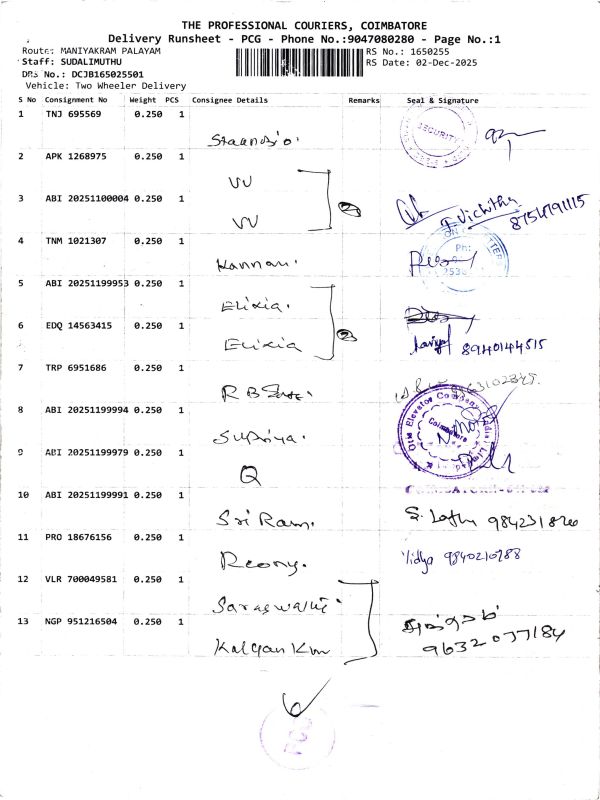 THE PROFESSIONAL COURIERS, COIMBATORE
Delivery Runsheet - PCG - Phone No.:9047080280 - Page No.:1
Route: MANIYAKRAM PALAYAM
RS No.: 1650255
Staff: SUDALIMUTHU
RS Date: 02-Dec-2025
DRS No.: DCJB165025501
Vehicle: Two Wheeler Delivery
S No Consignment No Weight PCS Consignee Details Remarks Seal & Signature
1 TNJ 695569 0.250 1
SECURITY
2 APK 1268975 0.250 1
VV
3 ABI 20251100004 0.250 1
VV
J. Vichithu 8754791115
4 TNM 1021307 0.250 1
Kannan.
Ph:
5 ABI 20251199953 0.250 1
Elixia.
6 EDQ 14563415 0.250 1
Elixia
8940144515
7 TRP 6951686 0.250 1
R B
8 ABI 20251199994 0.250 1
Supriya.
Otis Elevator Company (India) Limited
Coimbatore
9 ABI 20251199979 0.250 1
Q
10 ABI 20251199991 0.250 1
Sri Ram.
11 PRO 18676156 0.250 1
Reony.
Vidya 9840210788
12 VLR 700049581 0.250 1
Saraswathi.
13 NGP 951216504 0.250 1
Kalyan Km
9632077184